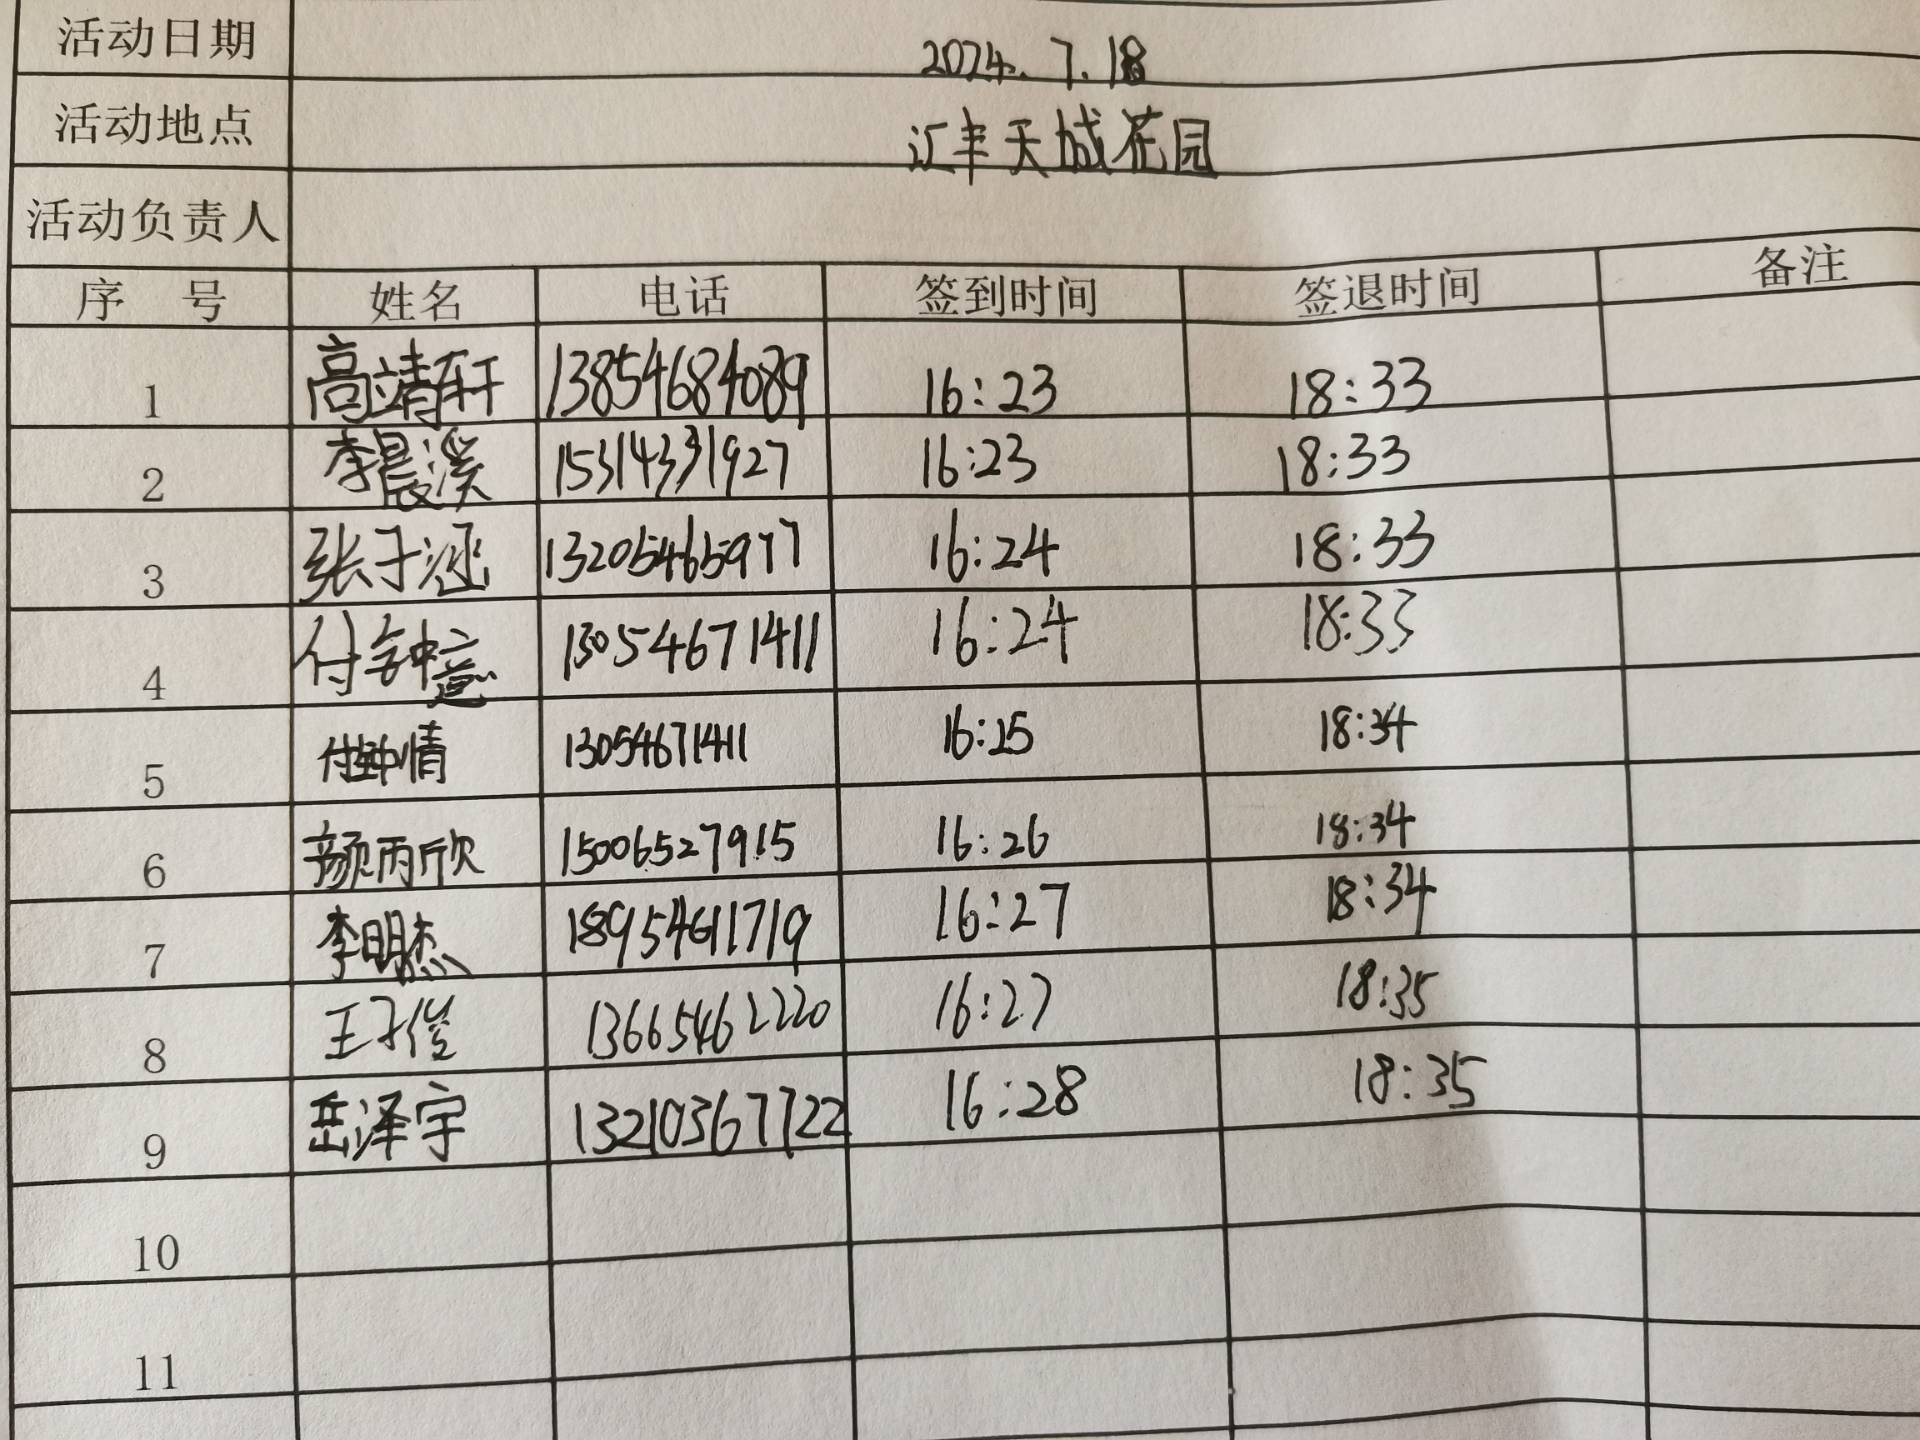 活动日期 2024.7.18
活动地点 汇丰天城花园
活动负责人
序 号 姓名 电话 签到时间 签退时间 备注
1 高靖轩 13854684089 16:23 18:33
2 李晨溪 15314331927 16:23 18:33
3 张子涵 13205465977 16:24 18:33
4 付钟意 13054671411 16:24 18:33
5 付钟情 13054671411 16:25 18:34
6 颜雨欣 15006527915 16:26 18:34
7 李明杰 18954611719 16:27 18:34
8 王子俊 13665462220 16:27 18:35
9 岳泽宇 13210367722 16:28 18:35
10
11